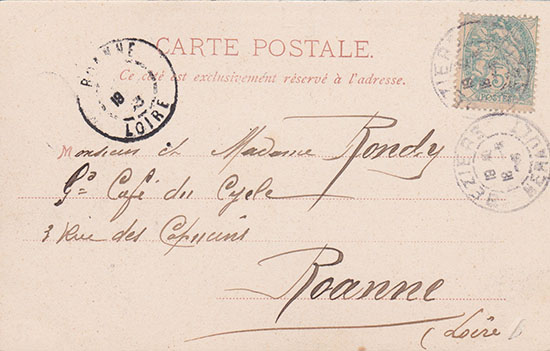 CARTE POSTALE.
Ce côté est exclusivement réservé à l'adresse.
ROANNE
LOIRE
Monsieur et Madame Rondy
Gd Café du Cycle
3 Rue des Capucins
Roanne
(Loire)